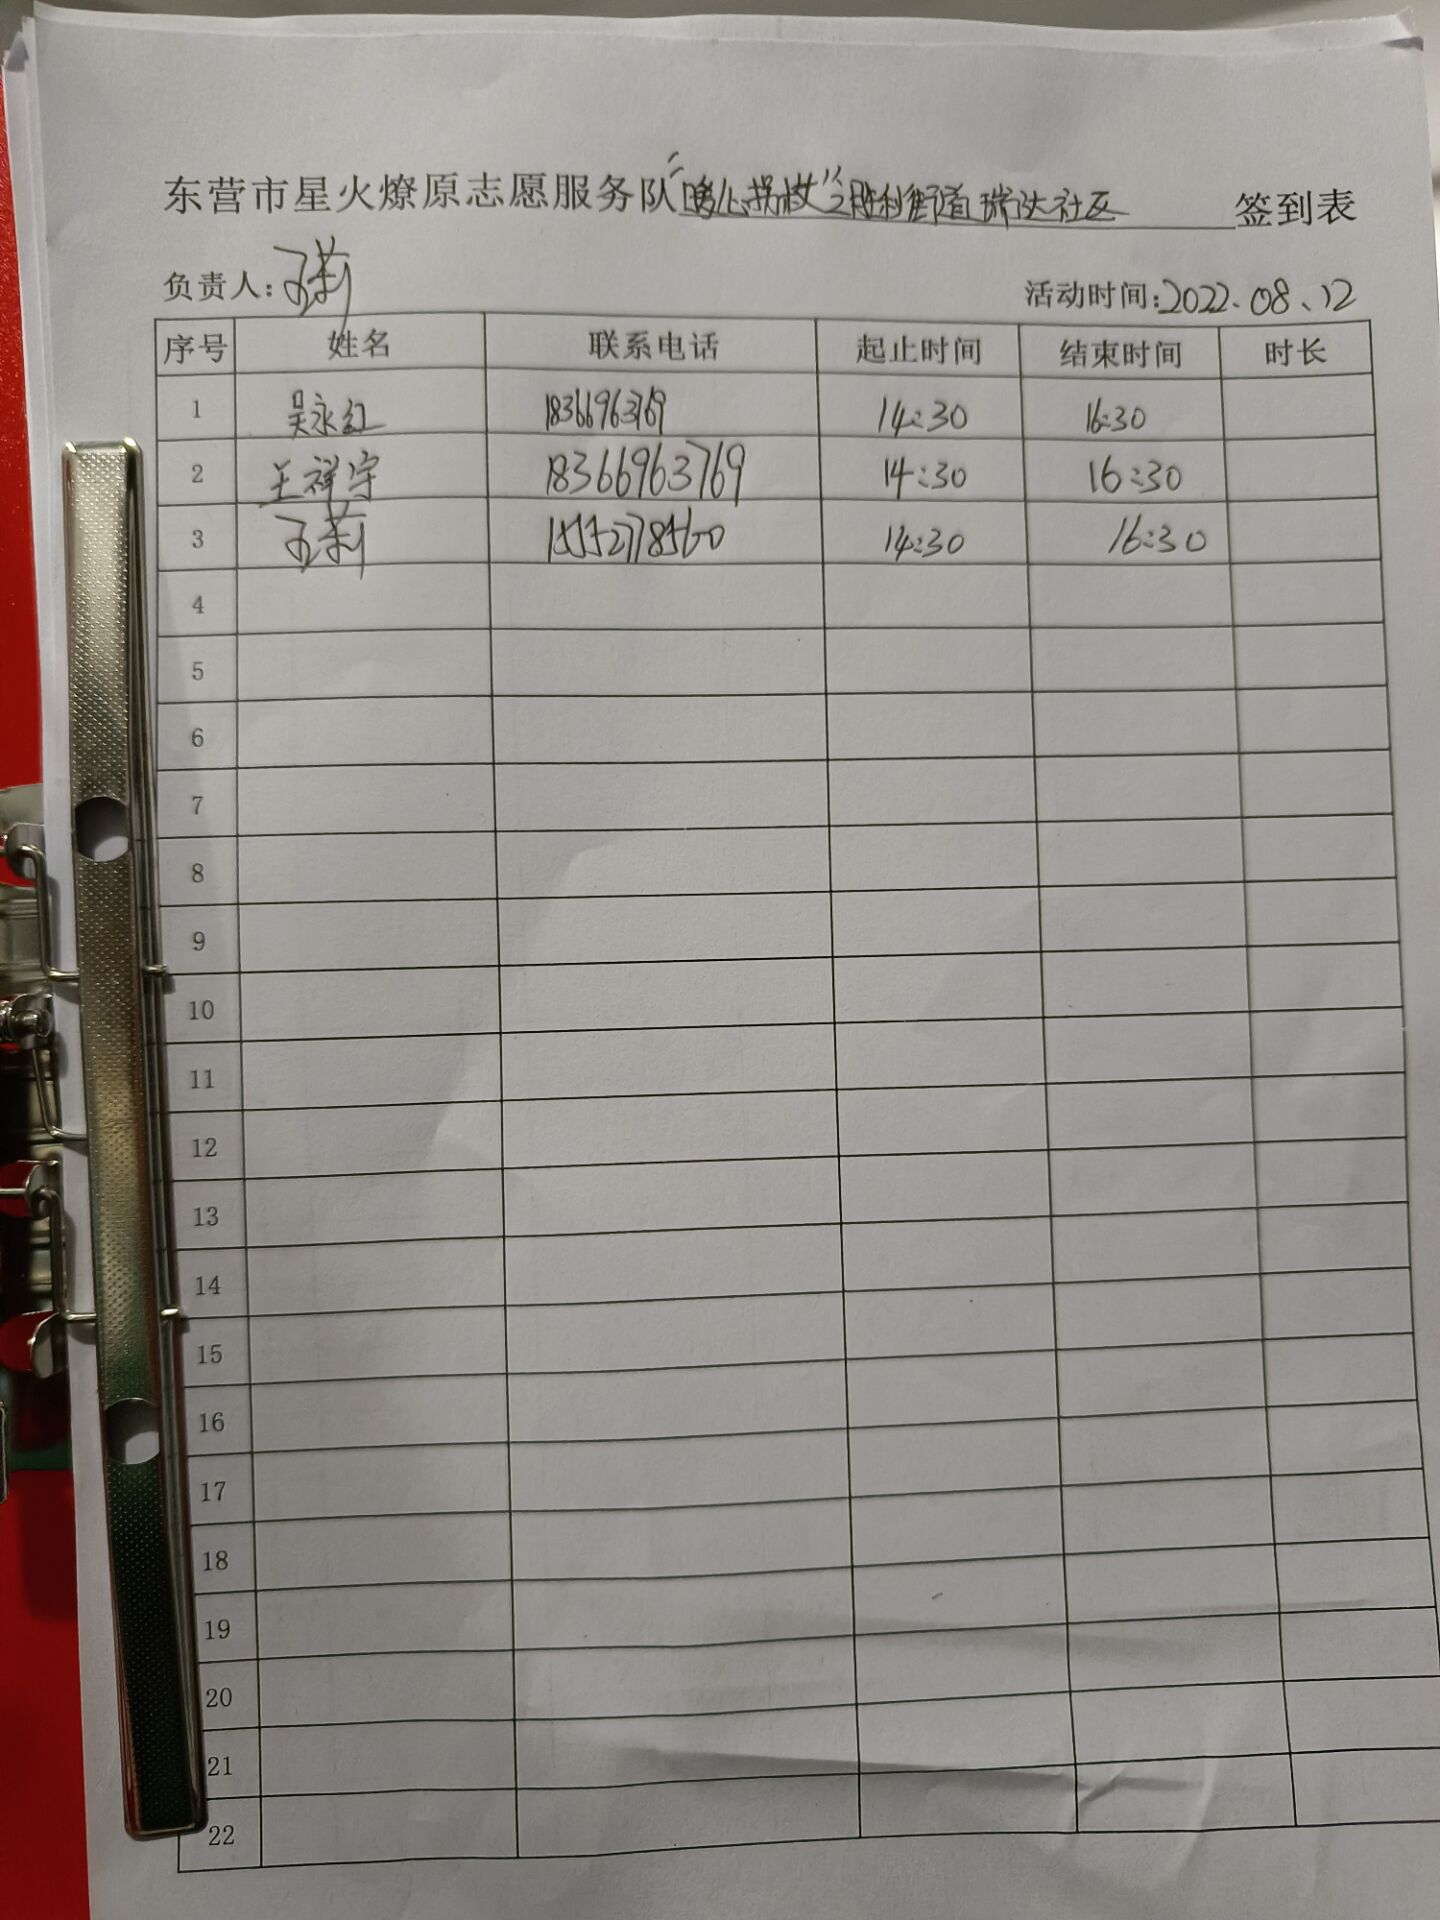 东营市星火燎原志愿服务队"暖心拐杖"之胜利街道瑞达社区 签到表
负责人: 活动时间:2022.08.12
序号 姓名 联系电话 起止时间 结束时间 时长
1 吴永红 18366963769 14:30 16:30
2 王祥宇 18366963769 14:30 16:30
3 15552778560 14:30 16:30
4
5
6
7
8
9
10
11
12
13
14
15
16
17
18
19
20
21
22